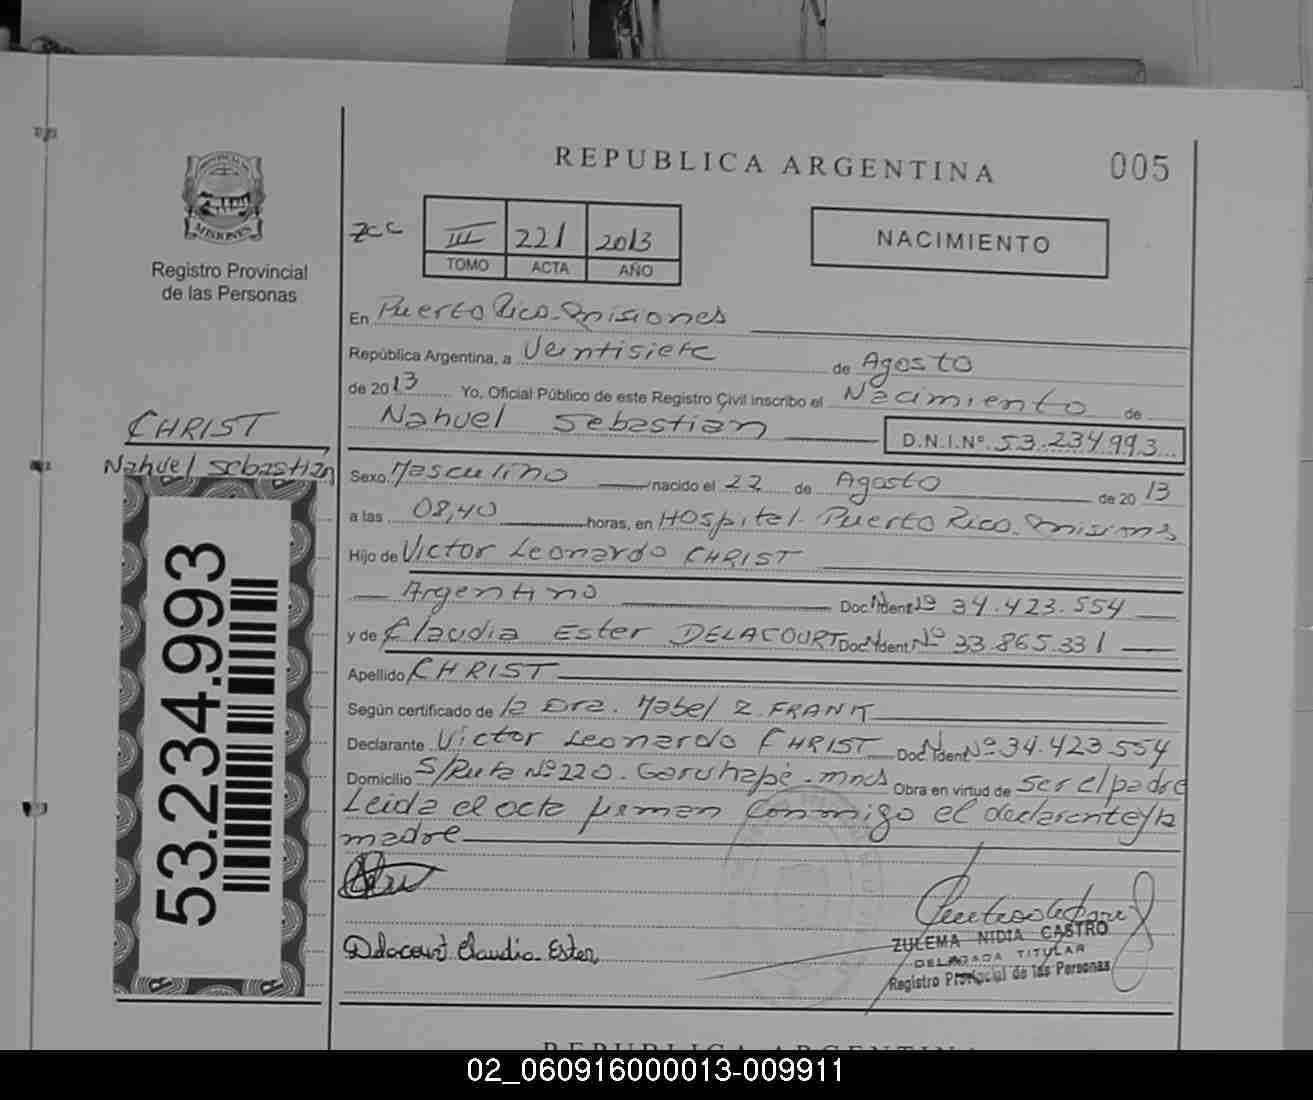 REPUBLICA ARGENTINA
005
PROVINCIA DE
MISIONES
Registro Provincial
de las Personas
zcc
III 221 2013
TOMO ACTA AÑO
NACIMIENTO
En Puerto Rico - Misiones
República Argentina, a Veintisiete de Agosto
de 2013 Yo, Oficial Público de este Registro Civil inscribo el Nacimiento de
Nahuel Sebastian D.N.I.Nº 53.234.993
CHRIST
Nahuel Sebastian
Sexo Masculino nacido el 22 de Agosto de 2013
a las 08,40 horas, en Hospital Puerto Rico. Misiones
Hijo de Victor Leonardo CHRIST
Argentino Doc. Ident. Nº 34.423.554
y de Claudia Ester DELACOURT Doc. Ident. Nº 33.865.331
Apellido CHRIST
Según certificado de la Dra. Mabel Z. FRANK
Declarante Victor Leonardo CHRIST Doc. Ident. Nº 34.423.554
Domicilio S/Ruta Nº 220. Garuhapé - mnes Obra en virtud de ser el padre
Leida el acta firman conmigo el declarante y la
madre
53.234.993
Delacourt Claudia Ester
ZULEMA NIDIA CASTRO
DELEGADA TITULAR
Registro Provincial de las Personas
REPUBLICA ARGENTINA
02_060916000013-009911